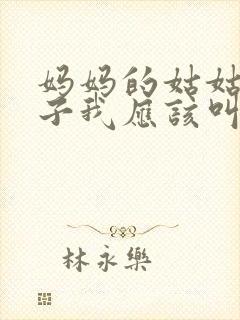 妈妈的姑姑
子我應該叫
林永樂